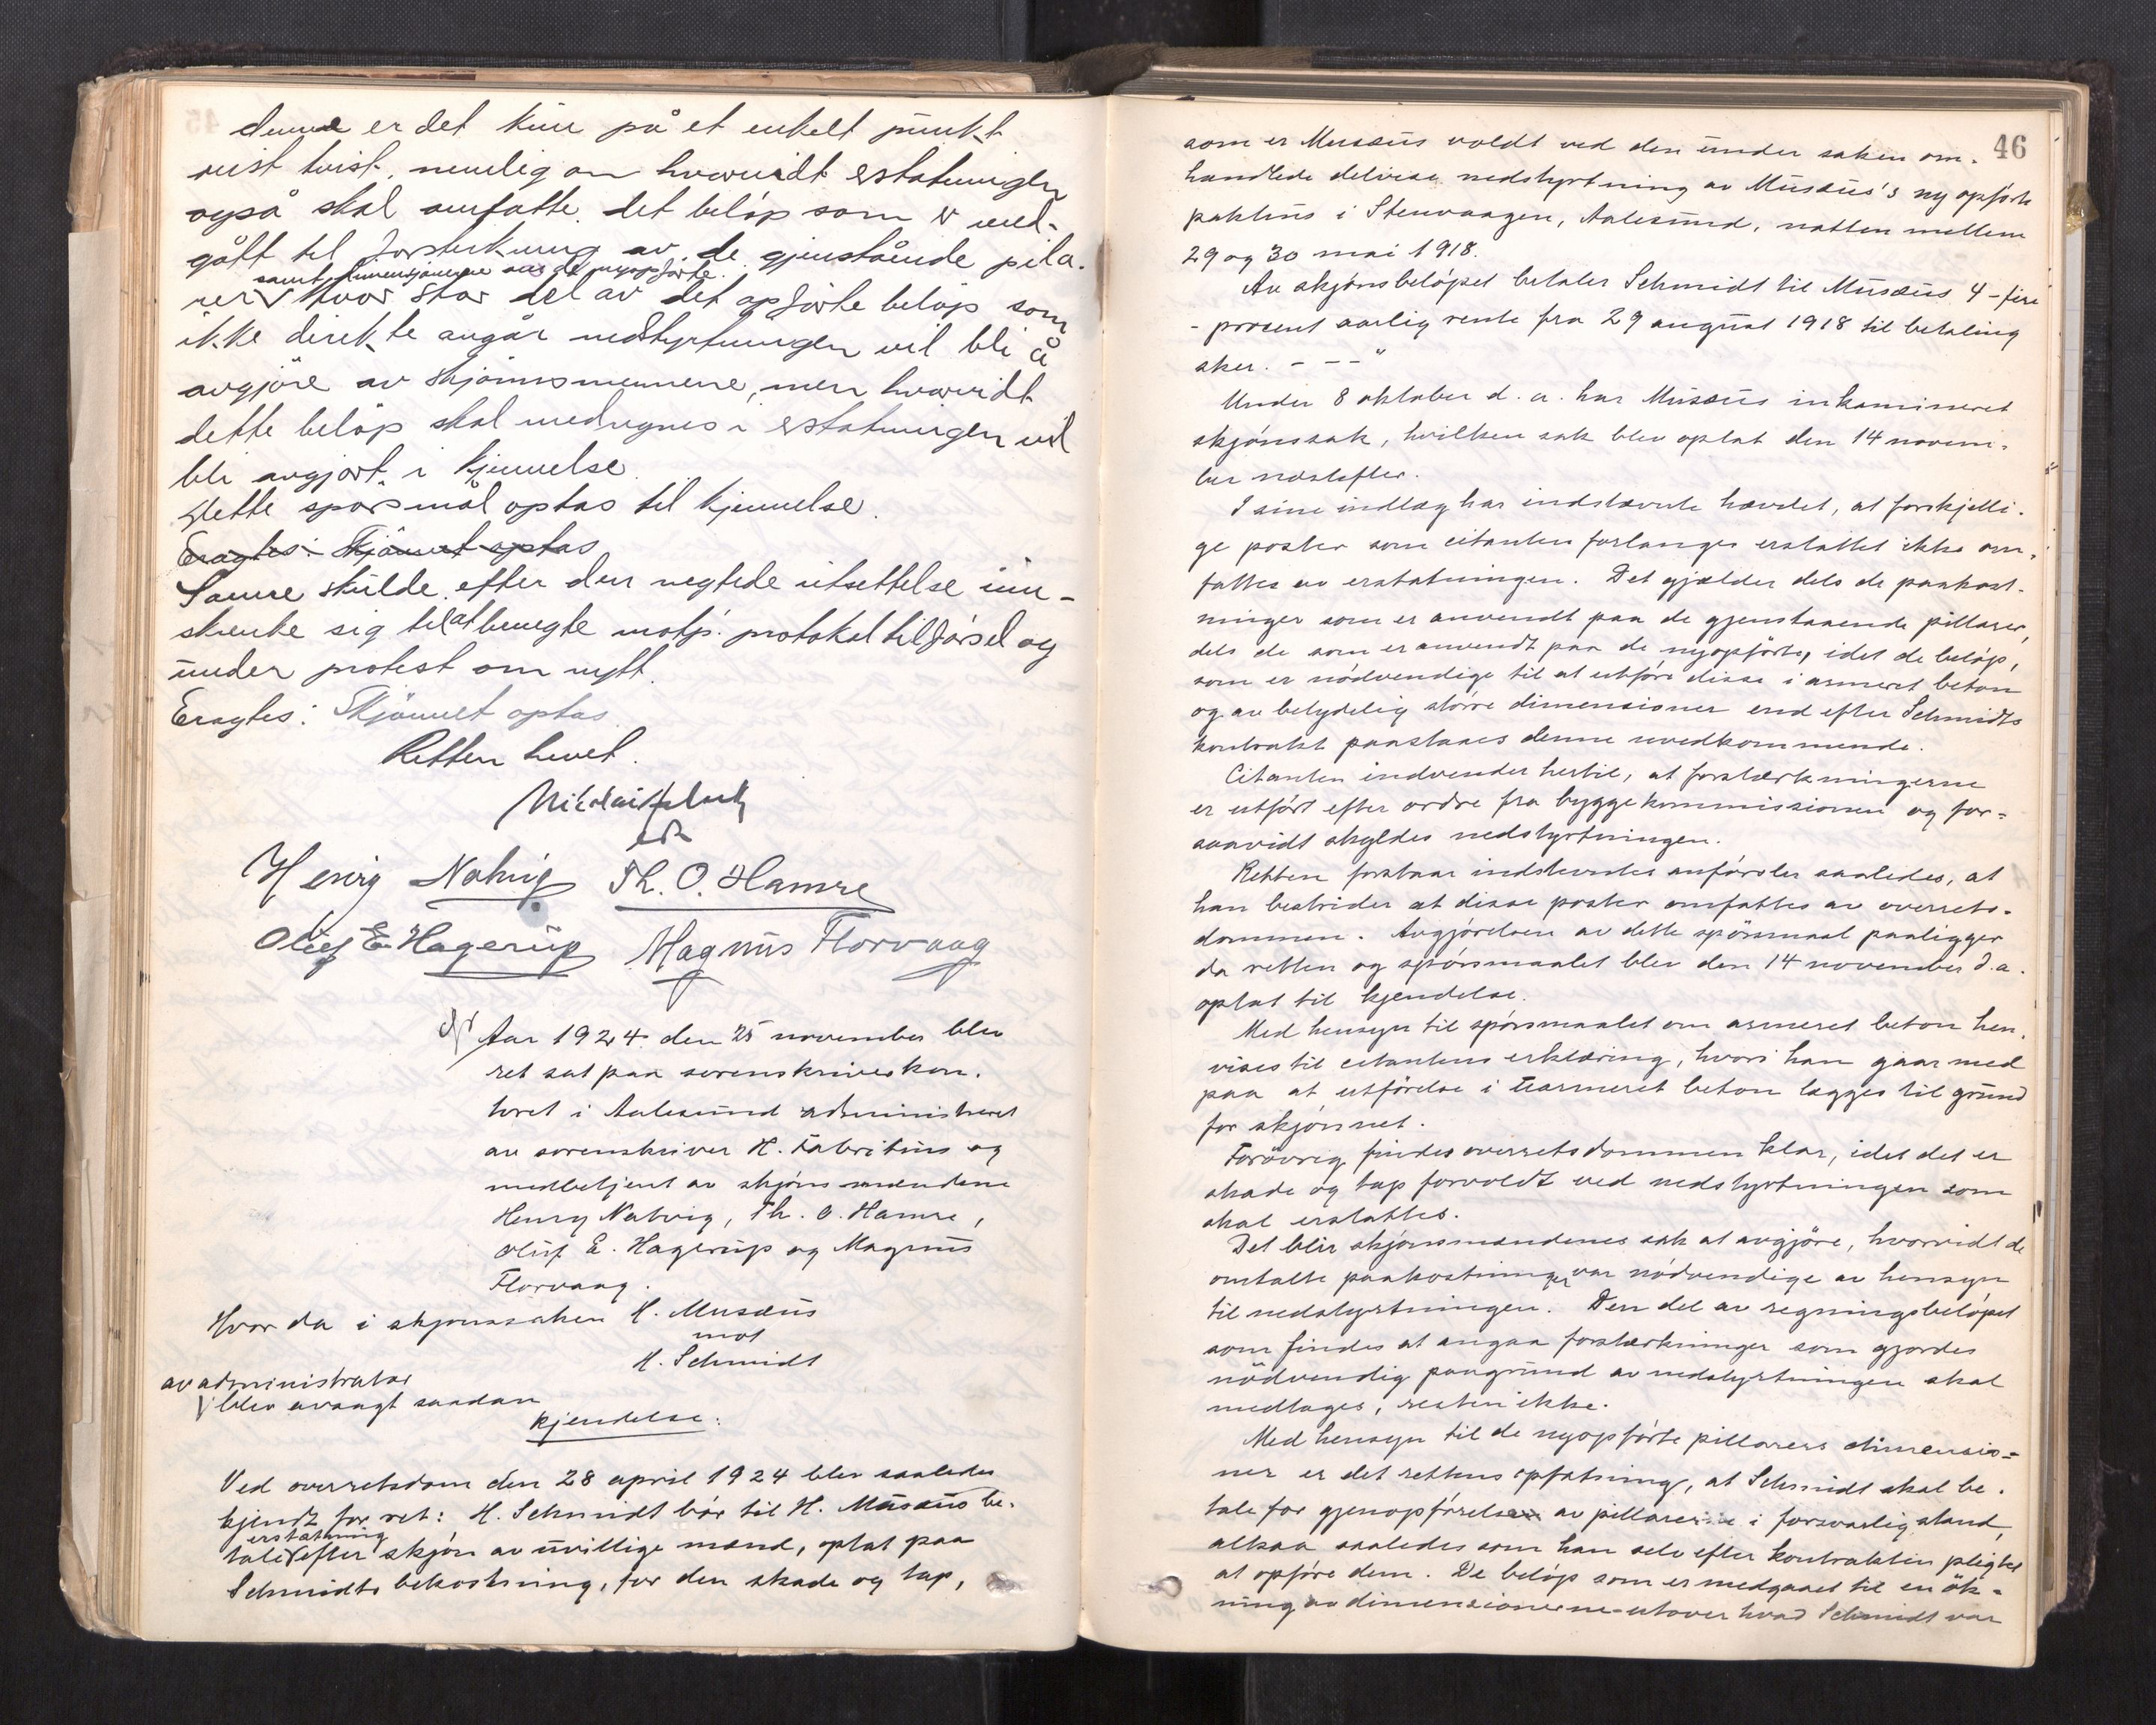 denne er det kun på et enkelt punkt
reist tvist, nemlig om hvorvidt erstatningen
også skal omfatte det beløp som er med-
gått til forsterkning av de gjenstående pila-
samt dimensjonerne av de nyopførte.
rer. Hvor stor del av det opførte beløp som
ikke direkte angår nedstyrtningen vil bli å
avgjöre av skjönnsmennene, men hvorvidt
dette belöp skal medregnes i erstatningen vil
bli avgjort i kjennelse.
Dette spørsmål optas til kjennelse.
Eragtes: Skjönnet optas
Sanne skulde efter den negtede utsettelse inn-
skrenke sig til at benegte motp. protokoltilförsel og
under protest om nytt.
Eragtes: Skjönnet optas.
Retten hevet.
Henry Natvig Th. O. Hamre
Oluf E. Hagerup Magnus Florvaag
Aar 1924 den 25 november blev
ret sat paa sorenskriverkon-
toret i Aalesund administreret
av sorenskriver H. Fabritius og
medbetjent av skjønsmændene
Henry Natvig, Th. O. Hamre,
Oluf E. Hagerup og Magnus
Florvaag.
Hvor da i skjønssaken H. Musæus
mot
H. Schmidt
av administrator
blev avsagt saadan
kjendelse:
Ved overretsdom den 28 april 1924 blev saaledes
kjendt for ret: H. Schmidt bør til H. Musæus be-
erstatning
tale efter skjøn av uvillige mænd, optat paa
Schmidts bekostning, for den skade og tap,
46
som er Musæus voldt ved den under saken om-
handlede delvise nedstyrtning av Musæus's ny opførte
pakhus i Stenvaagen, Aalesund, natten mellem
29 og 30 mai 1918.
Av skjønsbeløpet betaler Schmidt til Musæus 4 - fire
- procent aarlig rente fra 29 august 1918 til betaling
sker. - - - "
Under 8 oktober d. a. har Musæus inkamineret
skjønssak, hvilken sak blev optat den 14 novem-
ber næstefter.
I sine indlæg har indstævnte hævdet, at forskjelli-
ge poster som citanten forlanger erstattet ikke om-
fattes av erstatningen. Det gjælder dels de paakost-
ninger som er anvendt paa de gjenstaaende pillarer,
dels de som er anvendt paa de nyopførte, idet de beløp,
som er nødvendige til at utføre disse i armeret beton
og av betydelig større dimensioner end efter Schmidts
kontrakt paastaaes denne uvedkommende.
Citanten indvender hertil, at forstærkningerne
er utført efter ordre fra byggekommissionen og for-
saavidt skyldes nedstyrtningen.
Retten forstaar indstevntes anførsler saaledes, at
han bestrider at disse poster omfattes av overrets-
dommen. Avgjørelsen av dette spørsmaal paaligger
da retten og spørsmaalet blev den 14 november d. a.
optat til kjendelse.
Med hensyn til spørsmaalet om armeret beton hen-
vises til citantens erklæring, hvori han gaar med
paa at utførelse i uarmeret beton lægges til grund
for skjønnet.
Forøvrig findes overretsdommen klar, idet det er
skade og tap forvoldt ved nedstyrtningen som
skal erstattes.
Det blir skjønsmændenes sak at avgjøre, hvorvidt de
omtalte paakostninger var nødvendige av hensyn
til nedstyrtningen. Den del av regningsbeløpet
som findes at angaa forstærkninger som gjordes
nødvendig paagrund av nedstyrtningen skal
medtages, resten ikke.
Med hensyn til de nyopførte pillarers dimensio-
ner er det rettens opfatning, at Schmidt skal be-
tale for gjenopførelsen av pillarerne i forsvarlig stand,
altsaa saaledes som han selv efter kontrakten pligtet
at opføre dem. De beløp som er medgaaet til en øk-
ning av dimensionerne utover hvad Schmidt var